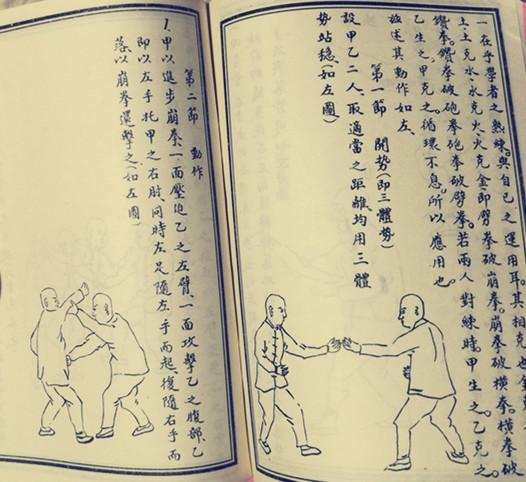 一在乎學者之熟練。與自己之運用耳。其相克也
土。土克水。水克火。火克金。即劈拳破崩拳。崩拳破橫拳。橫拳破
鑽拳。鑽拳破砲拳。砲拳破劈拳。若兩人對練時。甲生之。乙克之。
乙生之。甲克之。循環不息。所以應用也。
茲述其動作如左、
第一節 開勢(即三體勢)
設甲乙二人、取適當之距離、均用三體
勢站穩、(如左圖)
第二節 動作
1. 甲以進步崩拳、一面壓迫乙之左臂、一面攻擊乙之腹部、乙
即以左手托甲之右肘、同時左足隨左手而起、復隨右手而
落、以崩拳還擊之、(如左圖)